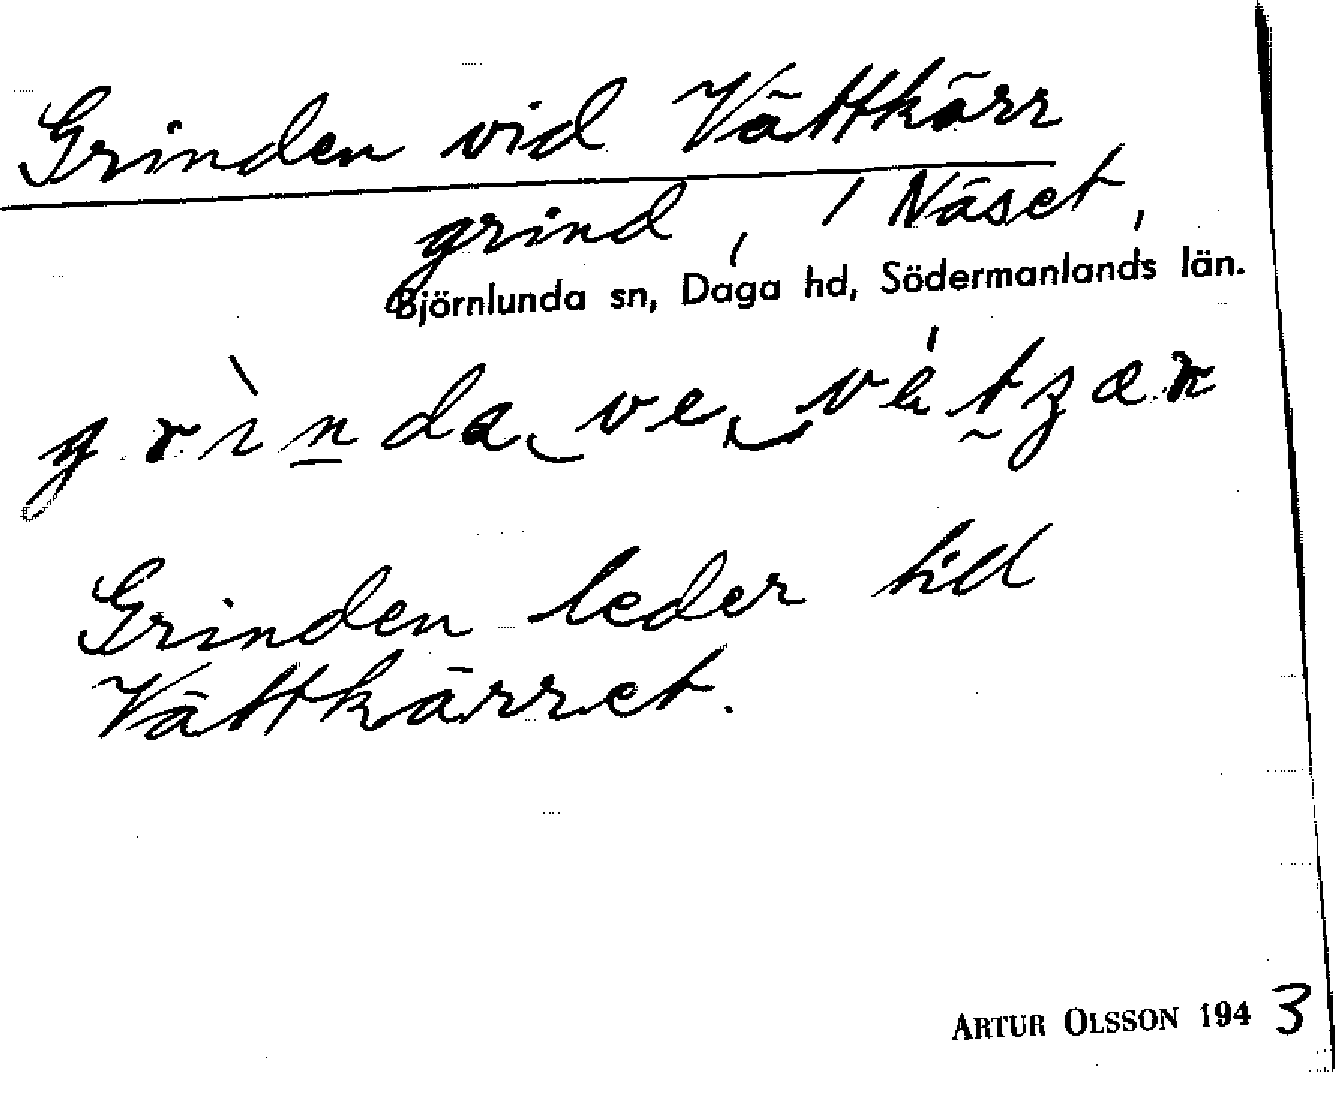 Grinden vid Vättkärr
grind, 1 Näset,
Björnlunda sn, Daga hd, Södermanlands län.
Grinden leder till
Vättkärret.
ARTUR OLSSON 1943